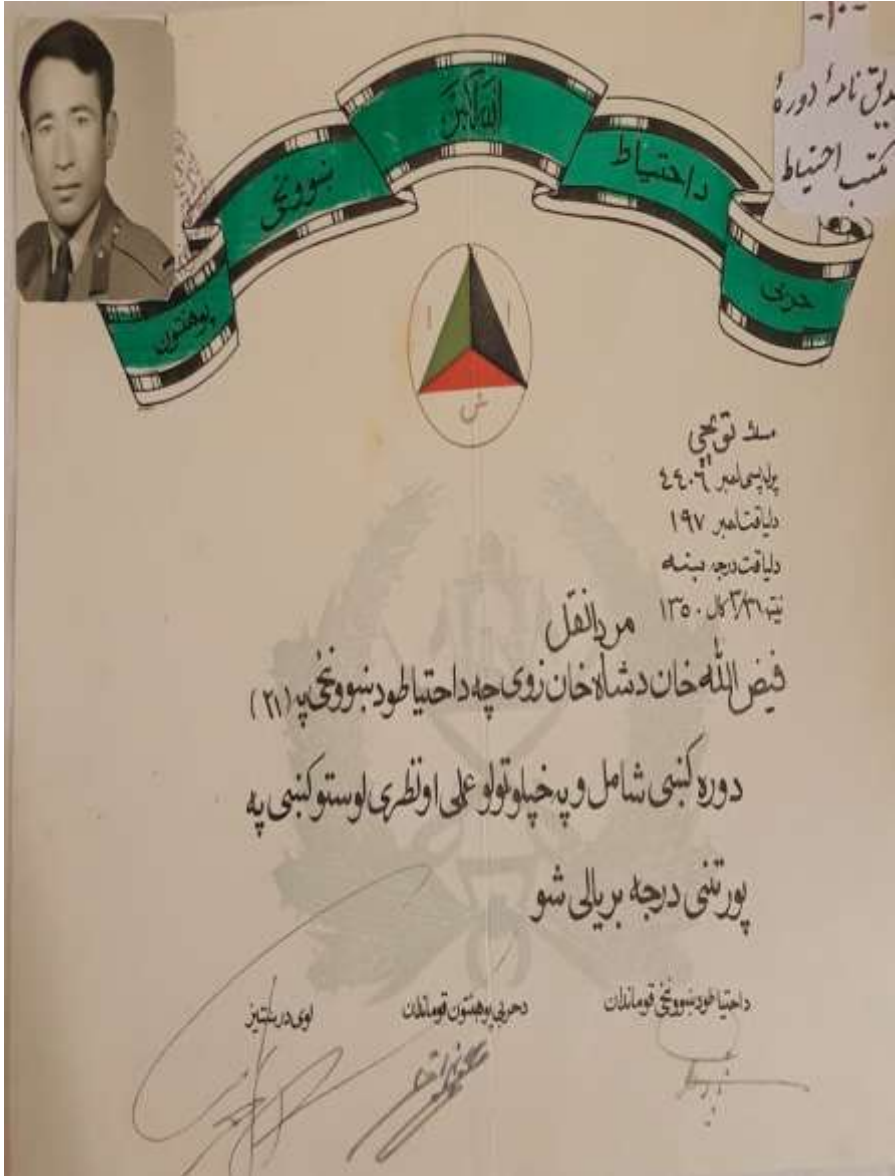 -۱۰-
دیق نامهٔ دورهٔ
مکتب احتیاط
الله اکبر
داحتیاط
ښوونځی
حربی
پوهنتون
ش
مسلک توپچی
پرلپسی لمبر ۴۴۰۶
دلیاقت لمبر ۱۹۷
دلیاقت درجه ښه
نیټه ۳/۳۱ کال ۱۳۵۰
مردانقل
فیض الله خان دشاه خان زوی چه داحتیاطو دښوونځی په (۲۱)
دوره کښی شامل و په خپلو ټولو عملی اونظری لوستو کښی په
پورتنی درجه بریالی شو
داحتیاطو دښوونځی قوماندان
دحربی پوهنتون قوماندان
لوی درستیز